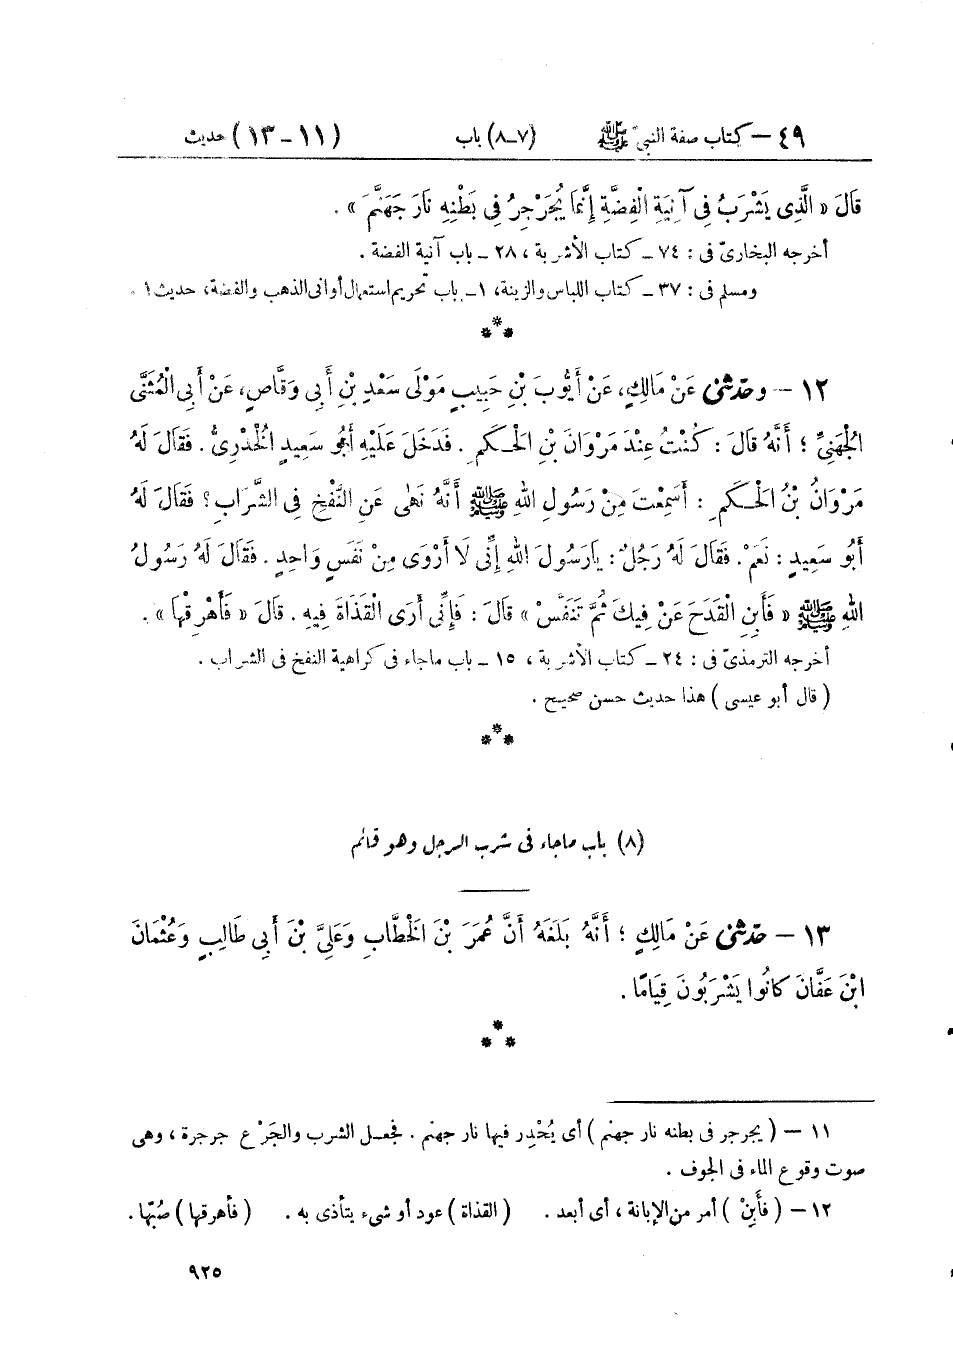 ٤٩ – كتاب صفة النبيّ ﷺ (٧-٨) باب (١١-١٣) حديث
قَالَ « الَّذِى يَشْرَبُ فِى آنِيَةِ الْفِضَّةِ إِنَّمَا يُجَرْجِرُ فِى بَطْنِهِ نَارَ جَهَنَّمَ » .
أخرجه البخارىّ فى : ٧٤ – كتاب الأشربة ، ٢٨ – باب آنية الفضة .
ومسلم فى : ٣٧ – كتاب اللباس والزينة، ١ – باب تحريم استعمال أوانى الذهب والفضة، حديث ١ .
***
١٢ – وحَدَّثَنِى عَنْ مَالِكٍ، عَنْ أَيُّوبَ بْنِ حَبِيبٍ مَوْلَى سَعْدِ بْنِ أَبِى وَقَّاصٍ، عَنْ أَبِى الْمُثَنَّى
الْجُهَنِىِّ ؛ أَنَّهُ قَالَ : كُنْتُ عِنْدَ مَرْوَانَ بْنِ الْحَكَمِ . فَدَخَلَ عَلَيْهِ أَبُو سَعِيدٍ الْخُدْرِىُّ . فَقَالَ لَهُ
مَرْوَانُ بْنُ الْحَكَمِ : أَسَمِعْتَ مِنْ رَسُولِ اللهِ ﷺ أَنَّهُ نَهَى عَنِ النَّفْخِ فِى الشَّرَابِ ؟ فَقَالَ لَهُ
أَبُو سَعِيدٍ : نَعَمْ . فَقَالَ لَهُ رَجُلٌ : يَارَسُولَ اللهِ إِنِّى لَا أَرْوَى مِنْ نَفَسٍ وَاحِدٍ . فَقَالَ لَهُ رَسُولُ
اللهِ ﷺ « فَأَبِنِ الْقَدَحَ عَنْ فِيكَ ثُمَّ تَنَفَّسْ » قَالَ : فَإِنِّى أَرَى الْقَذَاةَ فِيهِ . قَالَ « فَأَهْرِقْهَا » .
أخرجه الترمذىّ فى : ٢٤ – كتاب الأشربة ، ١٥ – باب ماجاء فى كراهية النفخ فى الشراب .
( قال أبو عيسى ) هذا حديث حسن صحيح .
***
(٨) باب ماجاء فى شرب الرجل وهو قائم
١٣ – حَدَّثَنِى عَنْ مَالِكٍ ؛ أَنَّهُ بَلَغَهُ أَنَّ عُمَرَ بْنَ الْخَطَّابِ وَعَلِىَّ بْنَ أَبِى طَالِبٍ وَعُثْمَانَ
ابْنَ عَفَّانَ كَانُوا يَشْرَبُونَ قِيَامًا .
***
١١ – ( يجرجر فى بطنه نار جهنم ) أى يُحْدِر فيها نار جهنم . فجعل الشرب والجَرْع جرجرة ، وهى
صوت وقوع الماء فى الجوف .
١٢ – ( فأَبِنْ ) أمر من الإبانة ، أى أبعد . ( القذاة ) عود أو شىء يتأذى به . ( فأهرقها ) صُبّها .
٩٢٥